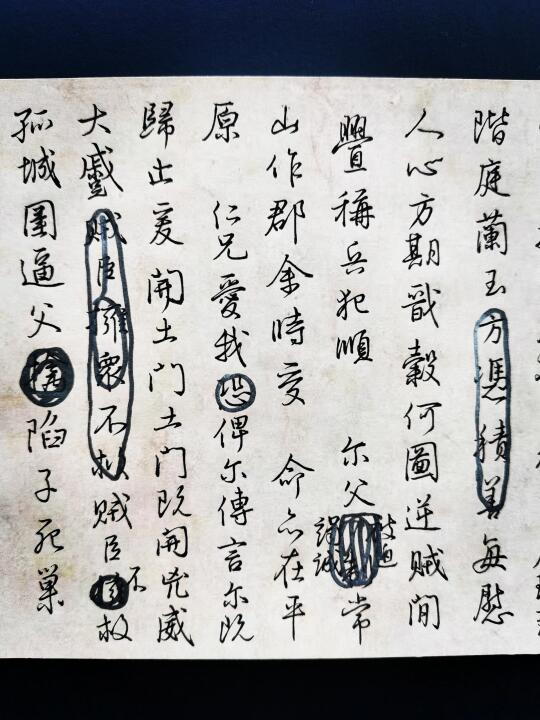 階庭蘭玉方憑積善每慰
人心方期戩穀何圖逆賊間
釁稱兵犯順 尔父竭誠常
山作郡余時受 命亦在平
原 仁兄愛我恐俾尔傳言尔既
歸止爰開土門土門既開兇威
大蹙賊臣擁眾不救賊臣不救
孤城圍逼父陷子死巢